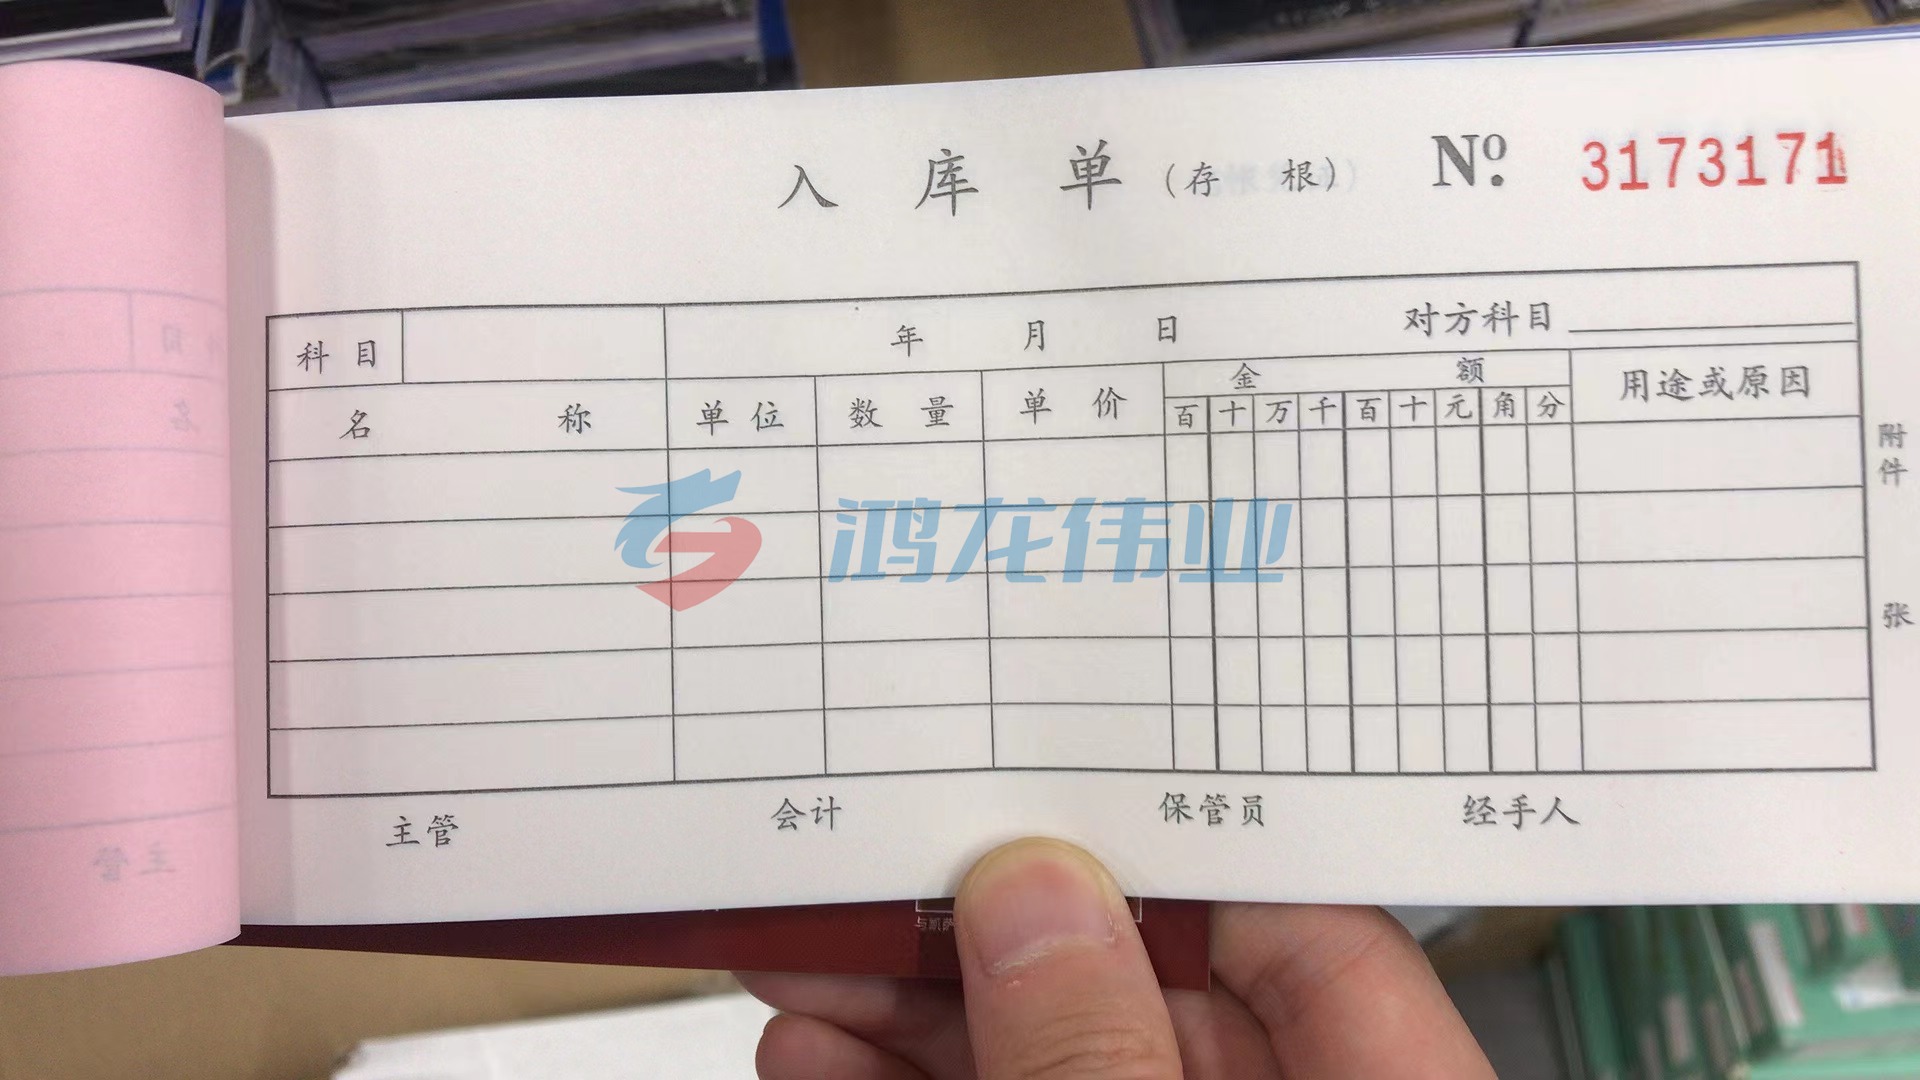 入 库 单 (存 根) Nº 3173171
科 目 年 月 日 对方科目
名 称 单 位 数 量 单 价 金 额 用途或原因
百 十 万 千 百 十 元 角 分
附件 张
鸿龙伟业
主管 会计 保管员 经手人
名
主管